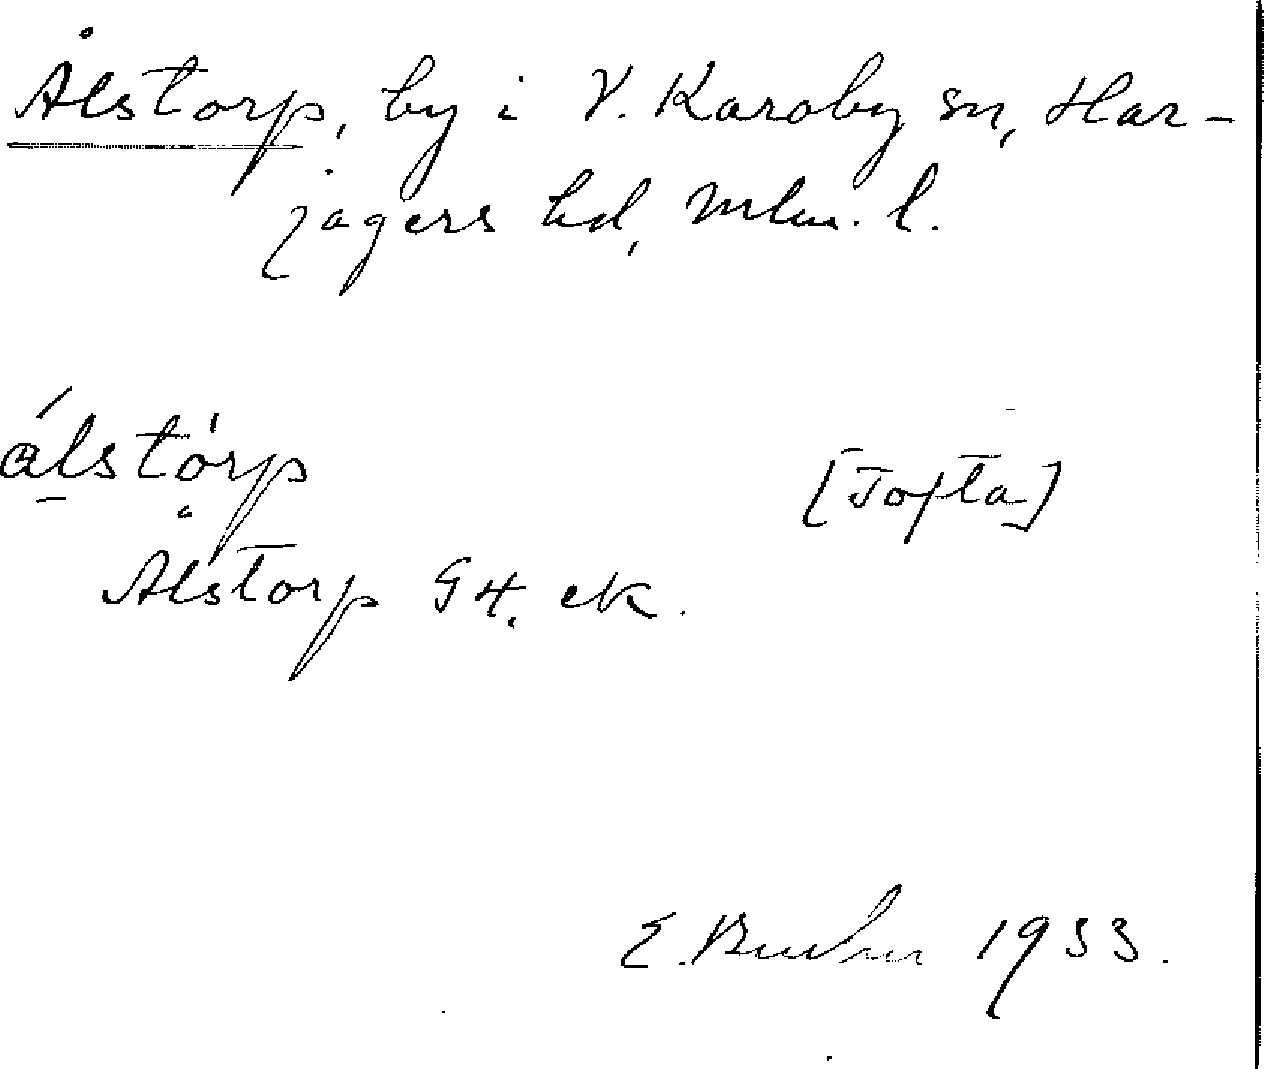 Ålstorp, by i V. Karaby sn, Har-
jagers hd, Mlm. l.
álstórp
[Tofta]
Ålstorp GK, ek.
E. 1933.